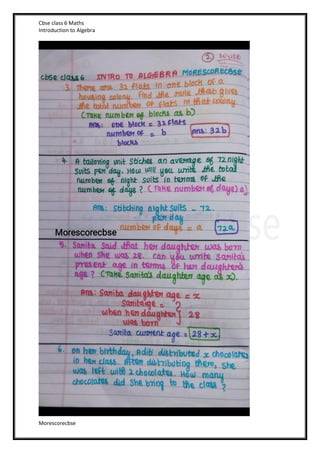 Cbse class 6 Maths
Introduction to Algebra
② house
cbse class 6 INTRO TO ALGEBRA MORESCORECBSE
3. There are 32 flats in one block of a
housing colony. Find the rule that gives
the total number of flats in that colony.
(Take number of blocks as b)
Ans: one block = 32 flats
number of = b
blocks
ans: 32b
4. A tailoring unit stiches an average of 72 night
suits per day. How will you write the total
number of night suits in terms of the
number of days? (Take number of days) a)
Ans: Stitching night suits = 72.
per day
number of days = a
72a
Morescorecbse
5. Sarita said that her daughter was born
when she was 28. can you write sarita's
present age in terms of her daughter's
age? (Take Sarita's daughter age as x).
Ans: Sarita daughter age = x
Sarita age =
when her daughter } 28
was born
Sarita current age = 28+x
6. On her birthday, Aditi distributed x chocolates
in her class. After distributing them, she
was left with 2 chocolates. How many
chocolates did she bring to the class?
Morescorecbse